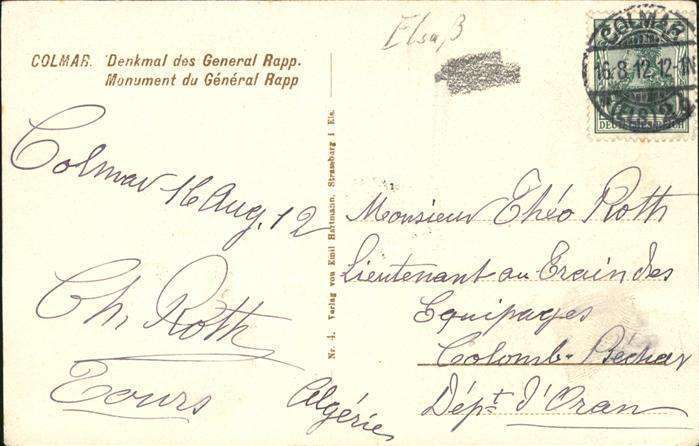 COLMAR. Denkmal des General Rapp.
Monument du Général Rapp
Elsaß
COLMAR
16.8.12.12-1N
(ELS)2
DEUTSCHES REICH
Colmar 16 Aug. 12
Ch. Roth
Tours
Nr. 4. Verlag von Emil Hartmann, Strassburg i Els.
Monsieur Théo Roth
Lieutenant au Train des
Equipages
Colomb-Béchar
Dépt d'Oran
Algérie